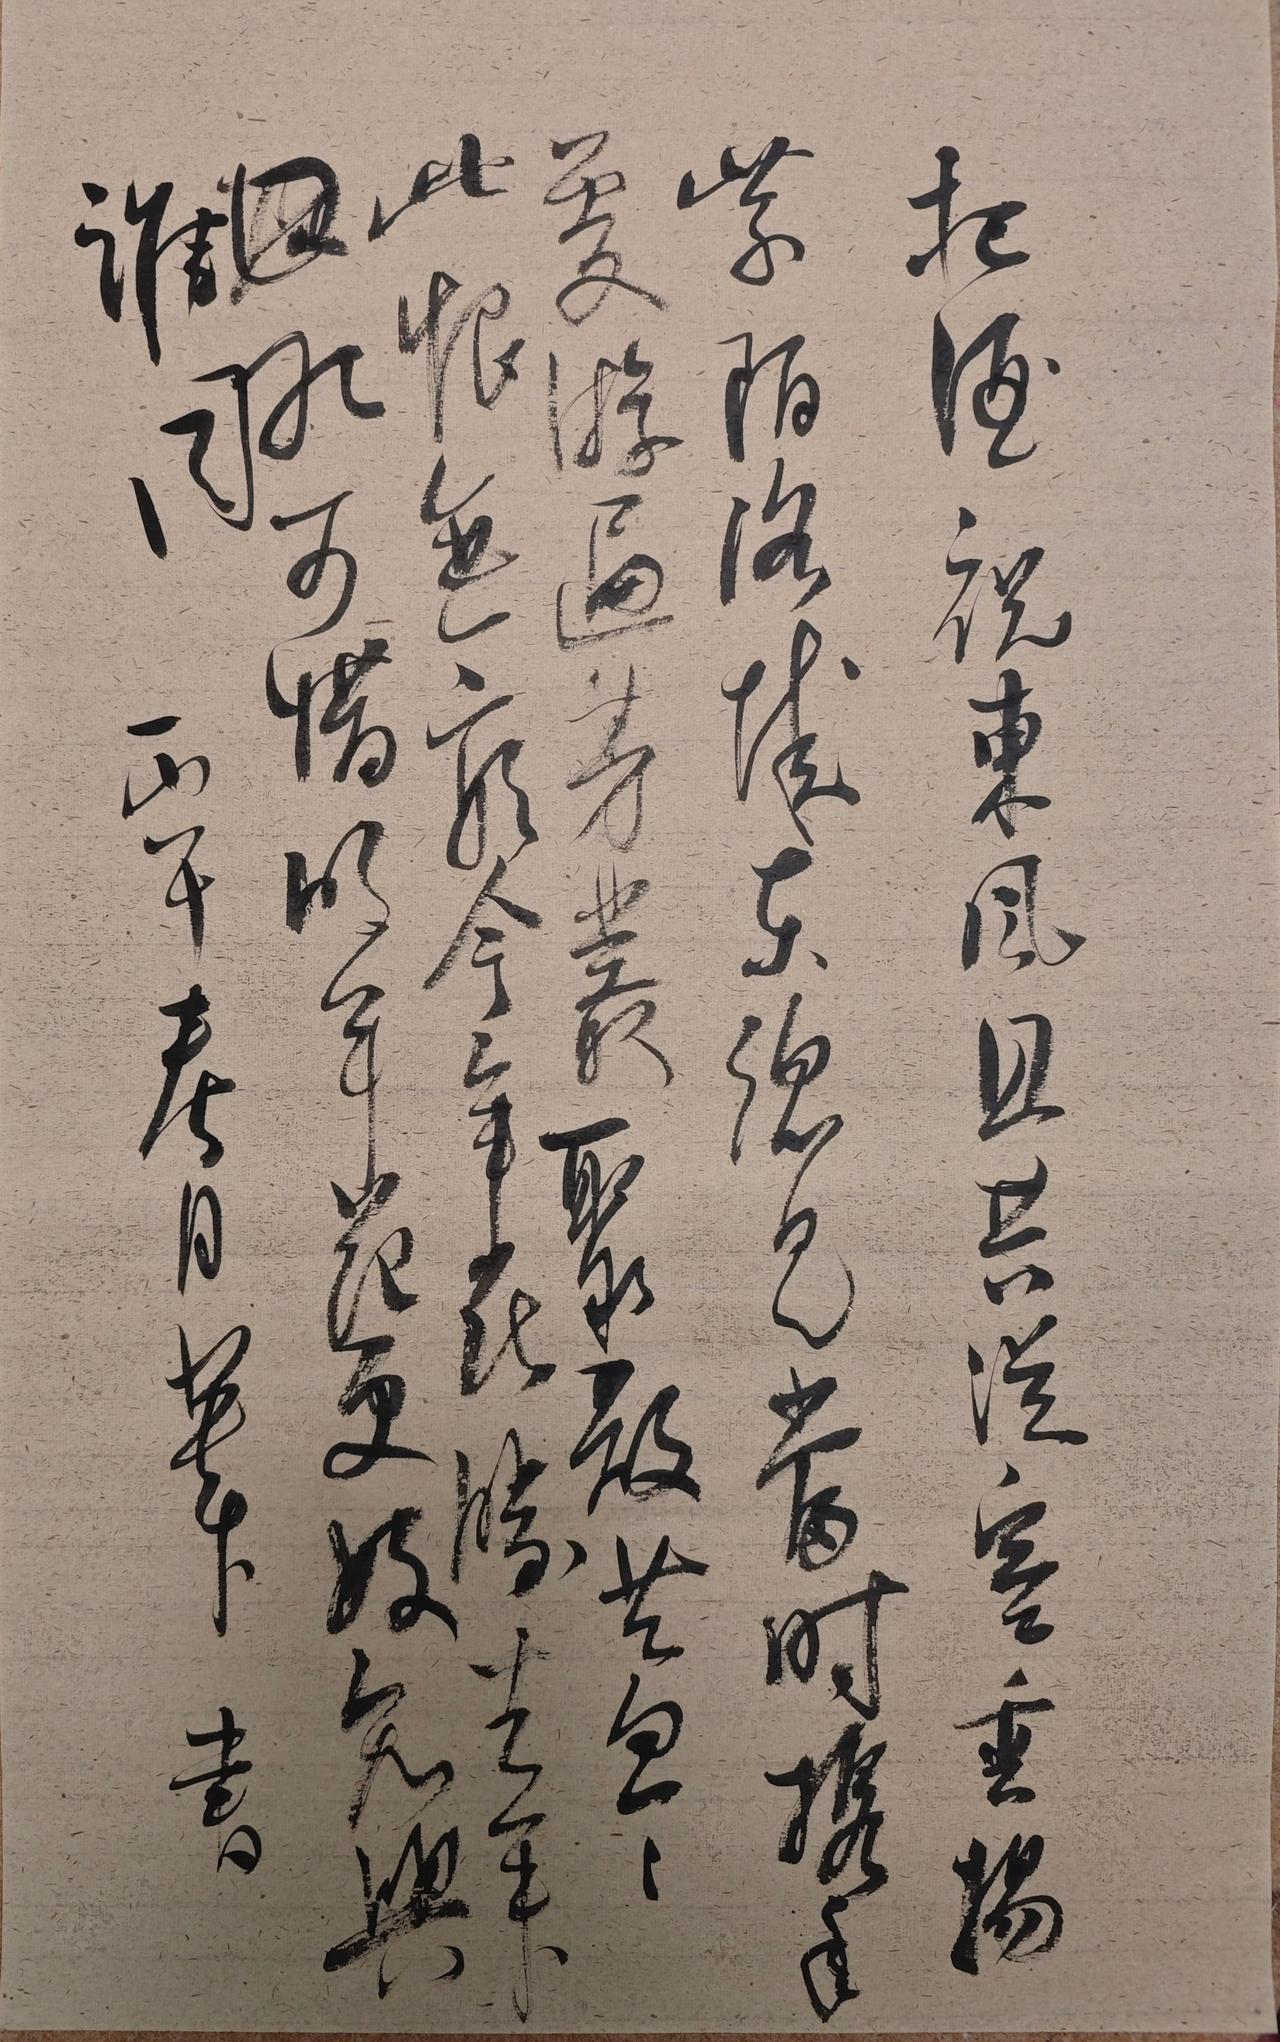 把酒祝東風且共從容垂楊
紫陌洛城东總是當时攜手
處游遍芳叢聚散苦匆々
此恨無窮今年花勝去年
紅可惜明年花更好知與
誰同 丙午春月 書